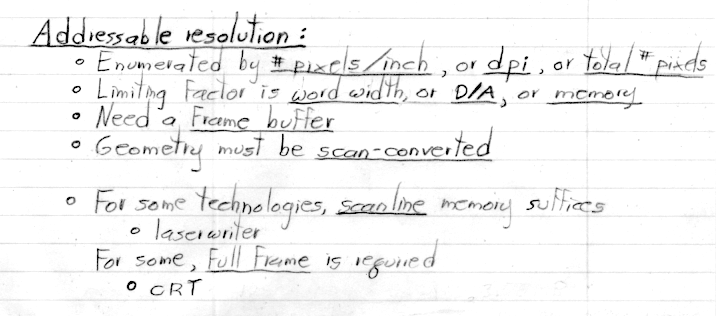 Addressable resolution :
• Enumerated by # pixels/inch, or dpi, or total # pixels
• Limiting Factor is word width, or D/A, or memory
• Need a Frame buffer
• Geometry must be scan-converted
• For some technologies, scanline memory suffices
• laserwriter
For some, Full Frame is required
• CRT